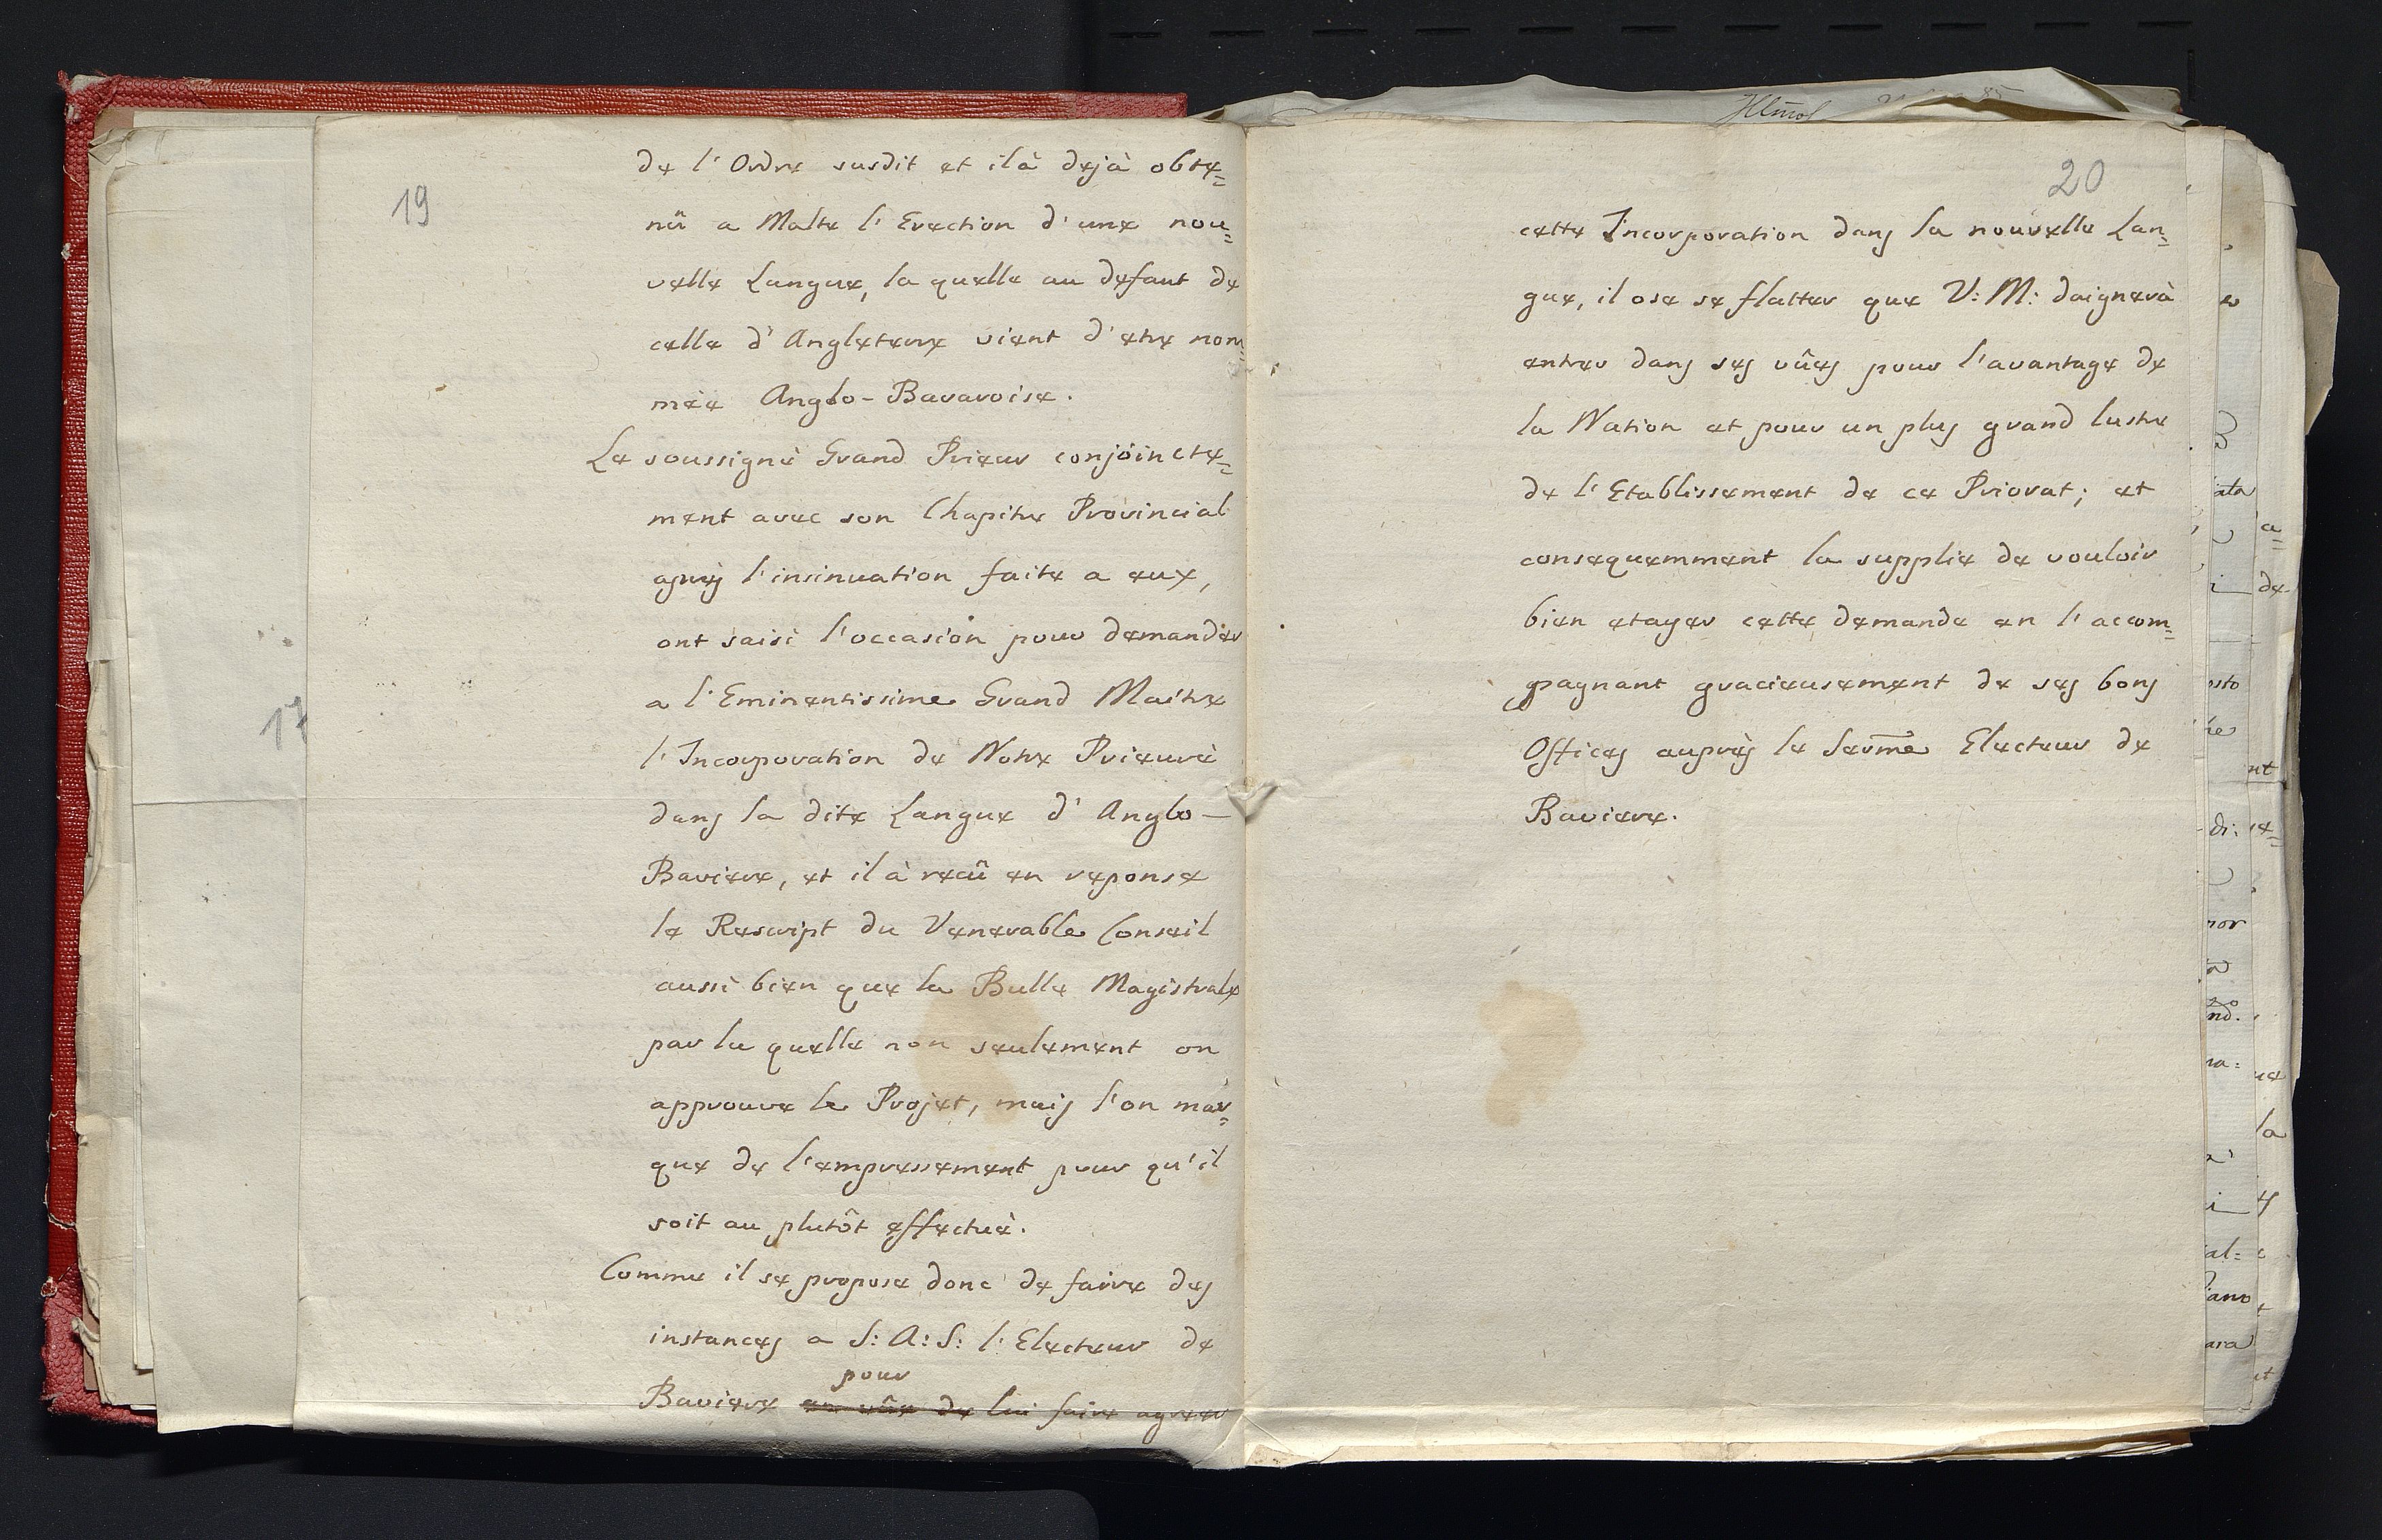 19
de l'Ordre susdit et il à dejà obte=
nû a Malte l'Erection d'une nou=
velle Langue, la quelle au defaut de
celle d'Angleterre vient d'etre nom=
mèe Anglo-Bavaroise.
Le soussignè Grand Prieur conjointcte=
ment avec son Chapitre Provincial
après l'insinuation faite a eux,
ont saisi l'occasion pour demander
a l'Eminentissime Grand Maitre
l'Incorporation de Notre Prieurè
dans la dite Langue d'Anglo-
Baviere, et il à recû en reponse
le Rescript du Venerable Conseil
aussi bien que la Bulle Magistrale
par la quelle non seulement on
approuve le Projet, mais l'on mar=
que de l'empressement pour qu'il
soit au plutôt effectuè.
Comme il se propose donc de faire des
instances a S: A: S: l'Electeur de
pour
Baviere en vûe de lui faire agreer
17
20
cette Incorporation dans la nouvelle Lan=
gue, il ose se flatter que V: M: daignerà
entrer dans ses vûes pour l'avantage de
la Nation et pour un plus grand lustre
de l'Etablissement de ce Priorat; et
consequemment la supplie de vouloir
bien etayer cette demande en l'accom=
pagnant gracieusement de ses bons
Offices auprès le Serme Electeur de
Baviere.